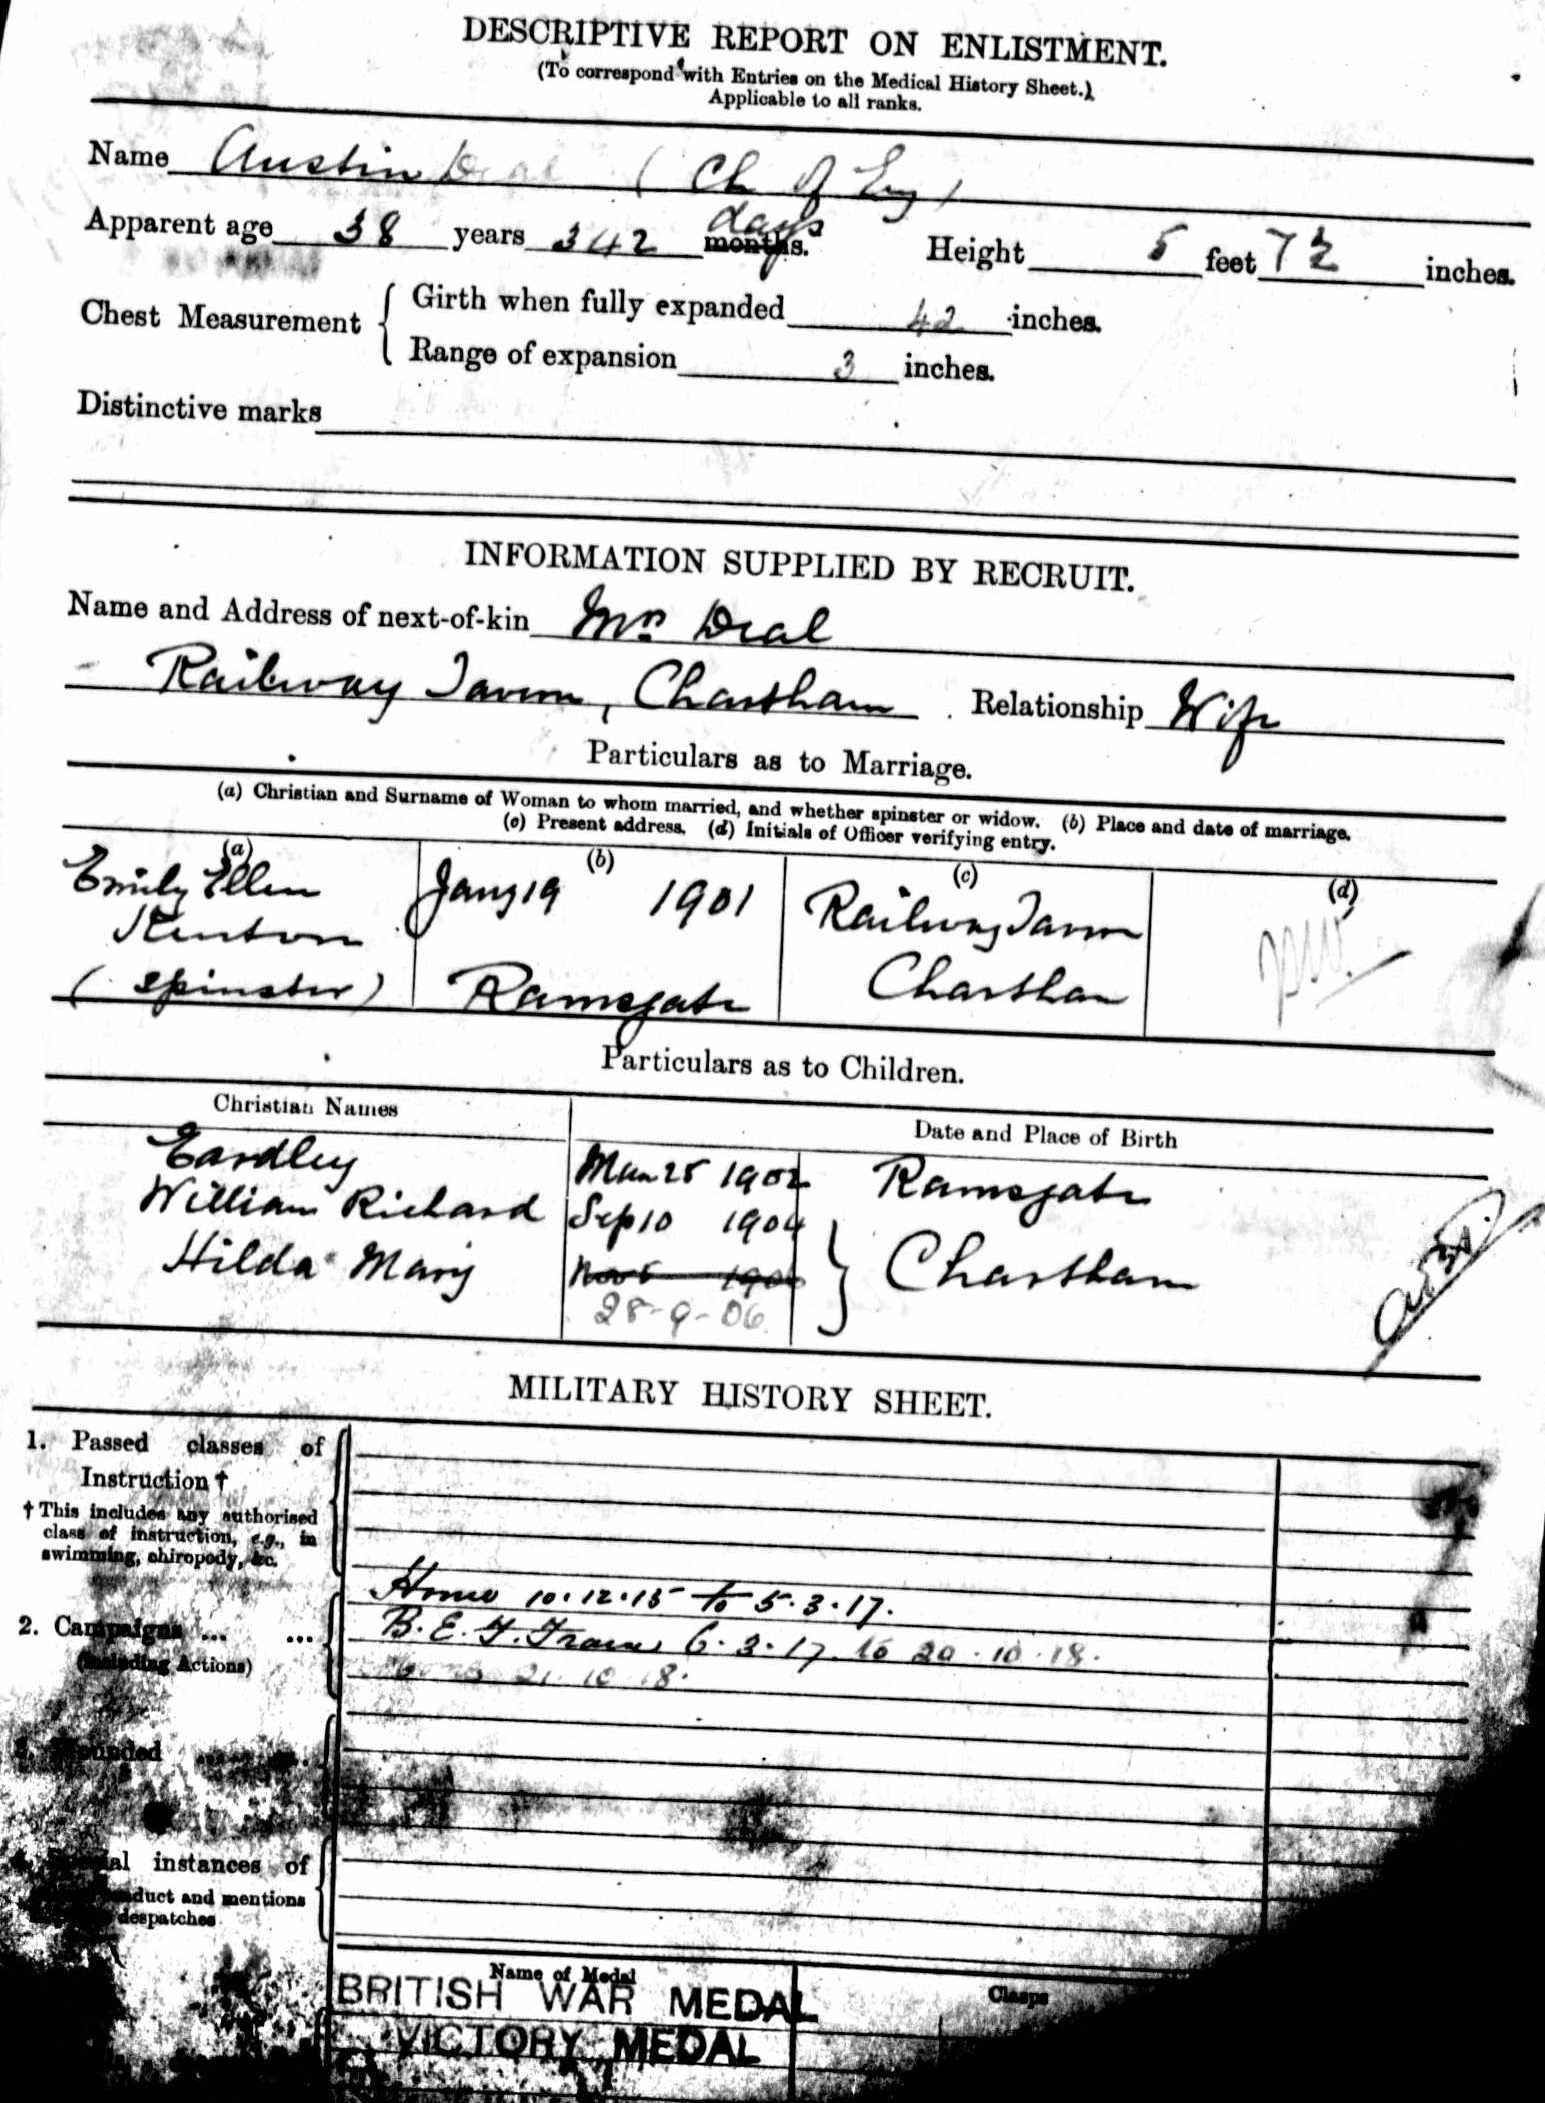 DESCRIPTIVE REPORT ON ENLISTMENT.
(To correspond with Entries on the Medical History Sheet.)
Applicable to all ranks.
Name Austin Deal (Ch of Eng)
Apparent age 38 years 342 months. days Height 5 feet 7½ inches.
Chest Measurement { Girth when fully expanded 42 inches.
Range of expansion 3 inches.
Distinctive marks
INFORMATION SUPPLIED BY RECRUIT.
Name and Address of next-of-kin Mrs Deal
Railway Tavern, Chartham. Relationship Wife
Particulars as to Marriage.
(a) Christian and Surname of Woman to whom married, and whether spinster or widow. (b) Place and date of marriage.
(c) Present address. (d) Initials of Officer verifying entry.
(a) (b) (c) (d)
Emily Ellen Jany 19 1901 Railway Tavern
Kenton
(spinster) Ramsgate Chartham
Particulars as to Children.
Christian Names Date and Place of Birth
Eardley Mar 25 1902 Ramsgate
William Richard Sep 10 1904
Hilda Mary Nov 5 1906 } Chartham
28-9-06
MILITARY HISTORY SHEET.
1. Passed classes of
Instruction †
† This includes any authorised
class of instruction, e.g., in
swimming, chiropody, &c.
Home 10.12.15 to 5.3.17.
2. Campaigns ... ...
B.E.F. France 6.3.17. to 20.10.18.
(including Actions)
Home 21.10.18.
3. Wounded ... ...
4. Special instances of
conduct and mentions
despatches
Name of Medal Clasps
BRITISH WAR MEDAL
VICTORY MEDAL